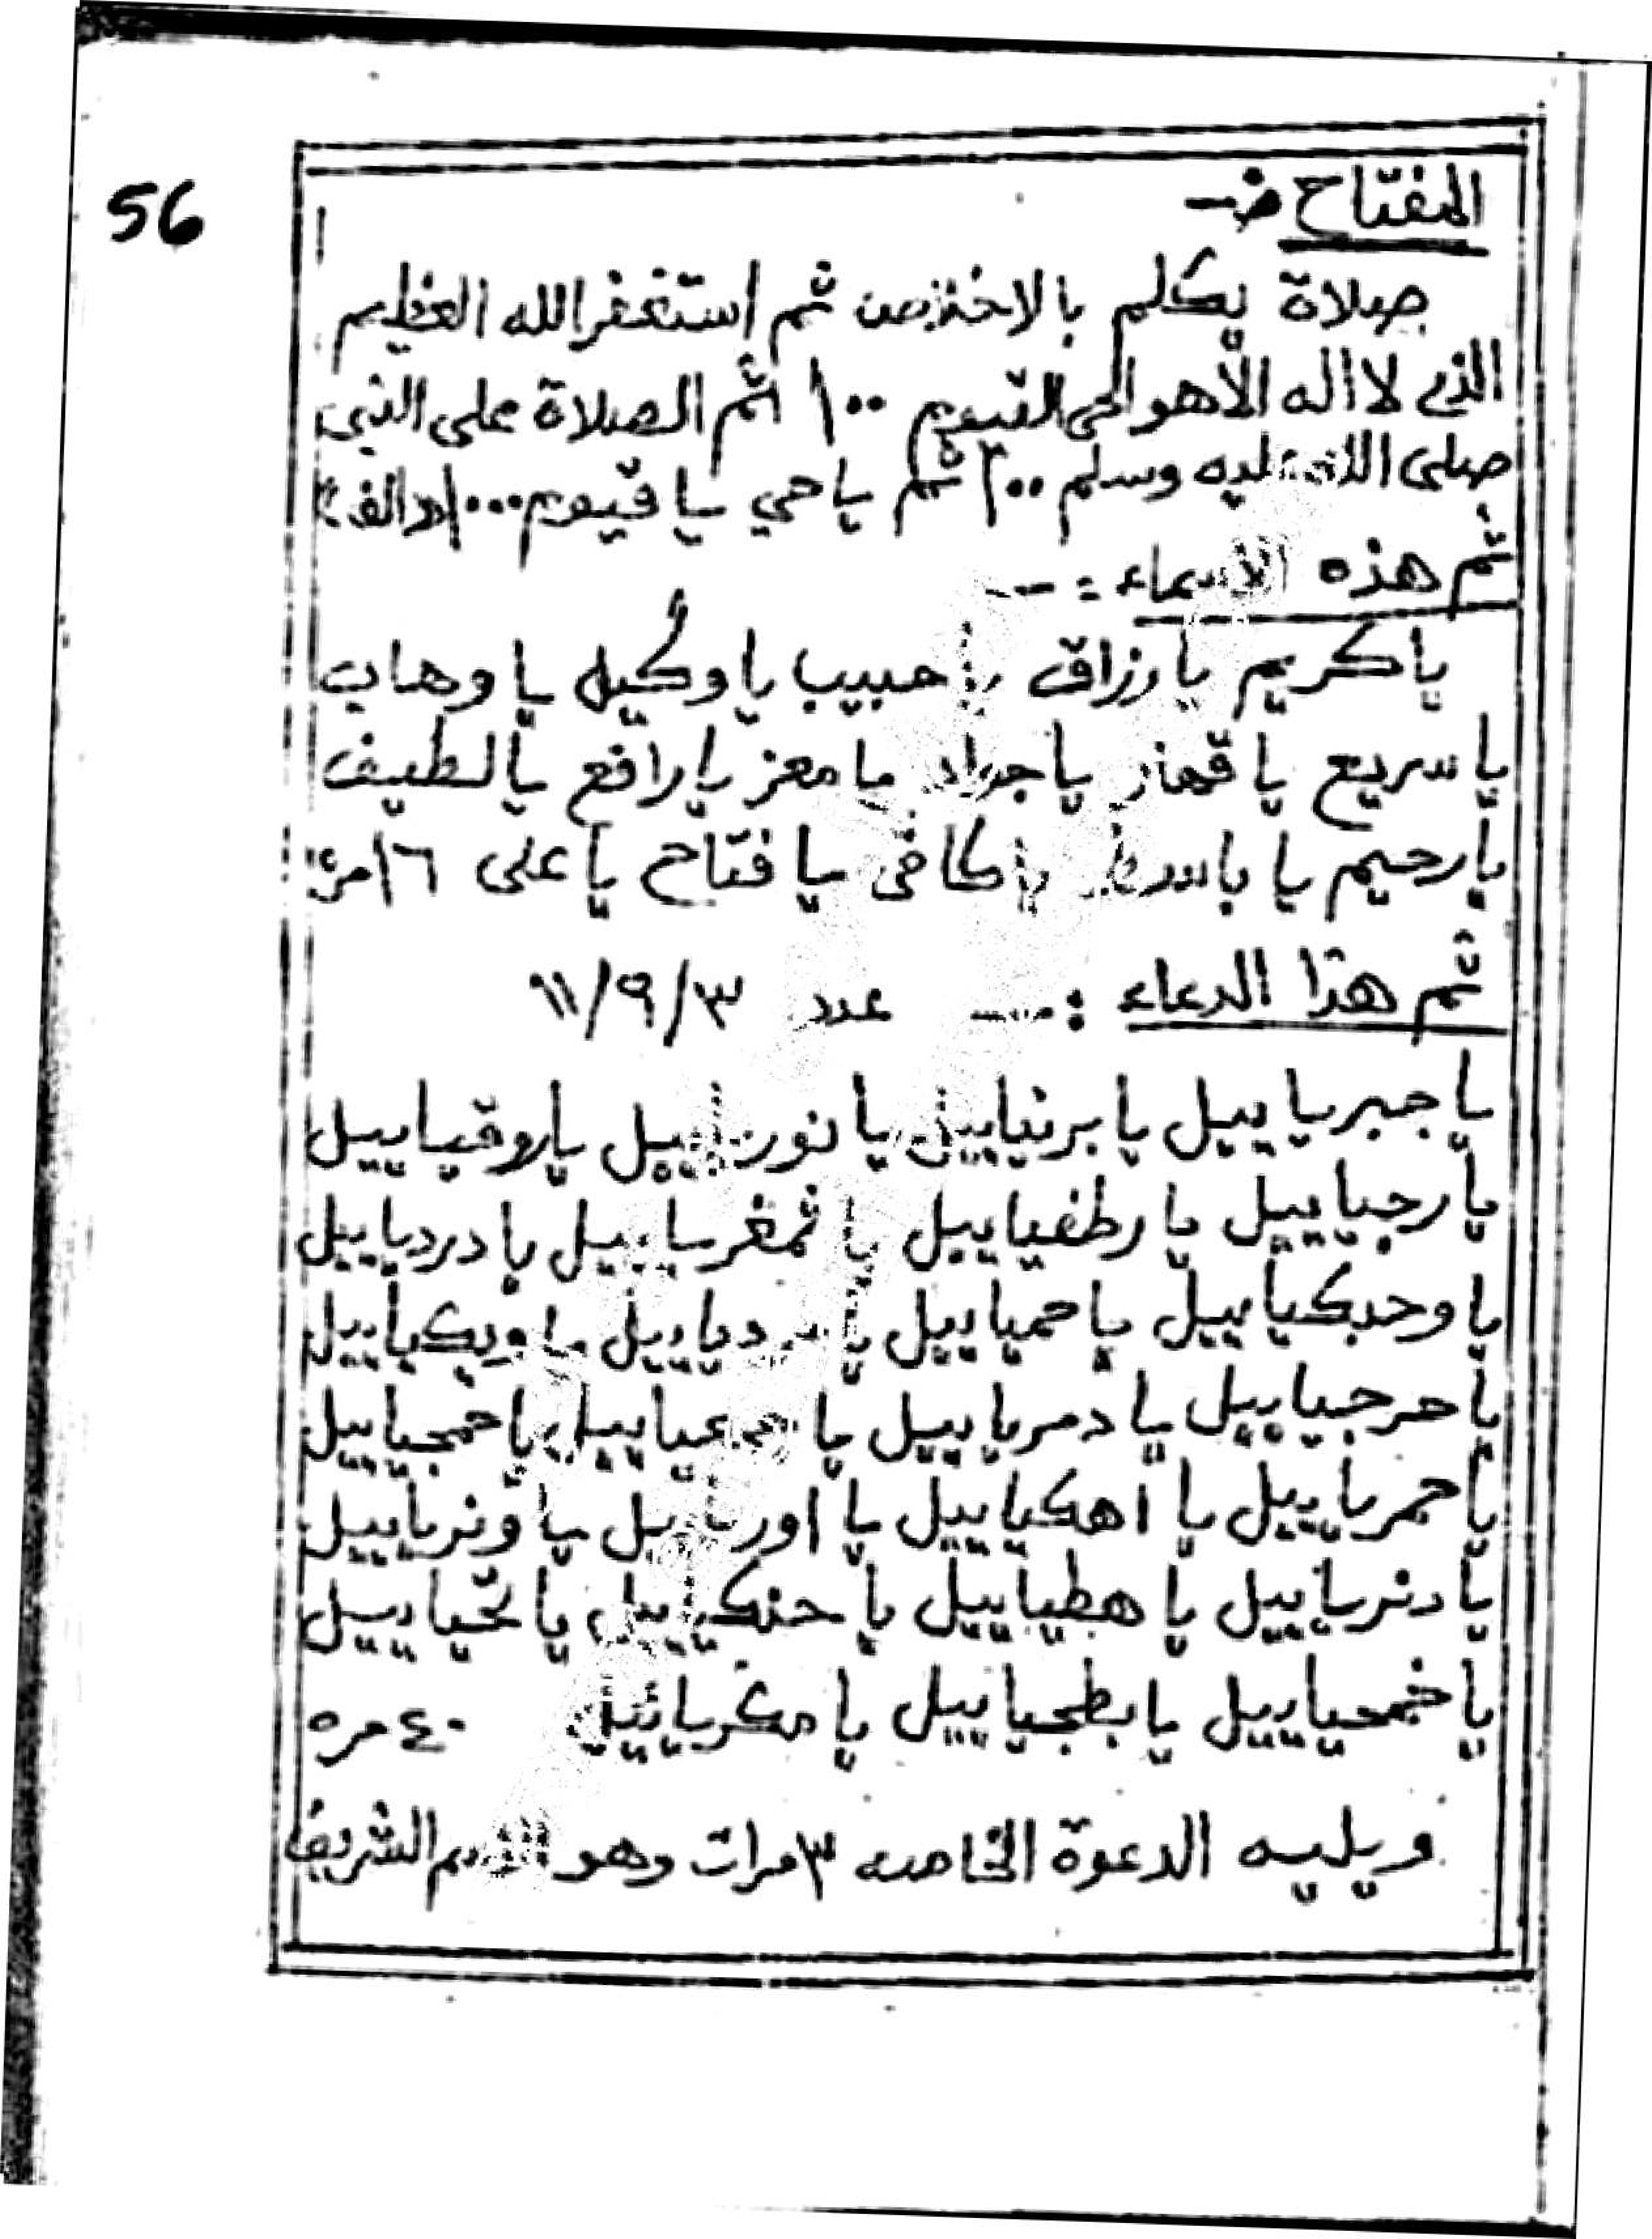 56
المفتاح :-
صلاة بكلم بالاخلاص ثم استغفر الله العظيم
الذي لا اله الا هو الحى القيوم ١٠٠ ثم الصلاة على النبى
صلى الله عليه وسلم ٢٠٠ ثم يا حي يا قيوم ١٠٠٠ «الف»
ثم هذه الاسماء :-
يا كريم يا رزاق يا حبيب يا وكيل يا وهاب
يا سريع يا قهار يا جواد يا معز يا رافع يا لطيف
يا رحيم يا باسط يا كافى يا فتاح يا على ١٦ مرة
ثم هذا الدعاء :- عدد ٣/٩/١١
يا جبرياييل يا برنياييل يا نورياييل يا روقياييل
يا رجياييل يا رطفياييل يا ثمغرياييل يا دردياييل
يا وحبكياييل يا حمياييل يا يا ويكياييل
يا حرجياييل يا دمرياييل يا يا حمجياييل
يا حمرياييل يا اهكياييل يا اورياييل يا ونرياييل
يا دنرياييل يا هطياييل يا حنكياييل يا تحياييل
يا خمحياييل يا بطحياييل يا مكريائيل ٤٠ مره
ويليه الدعوة الخاصه ٣ مرات وهو الاسم الشريف